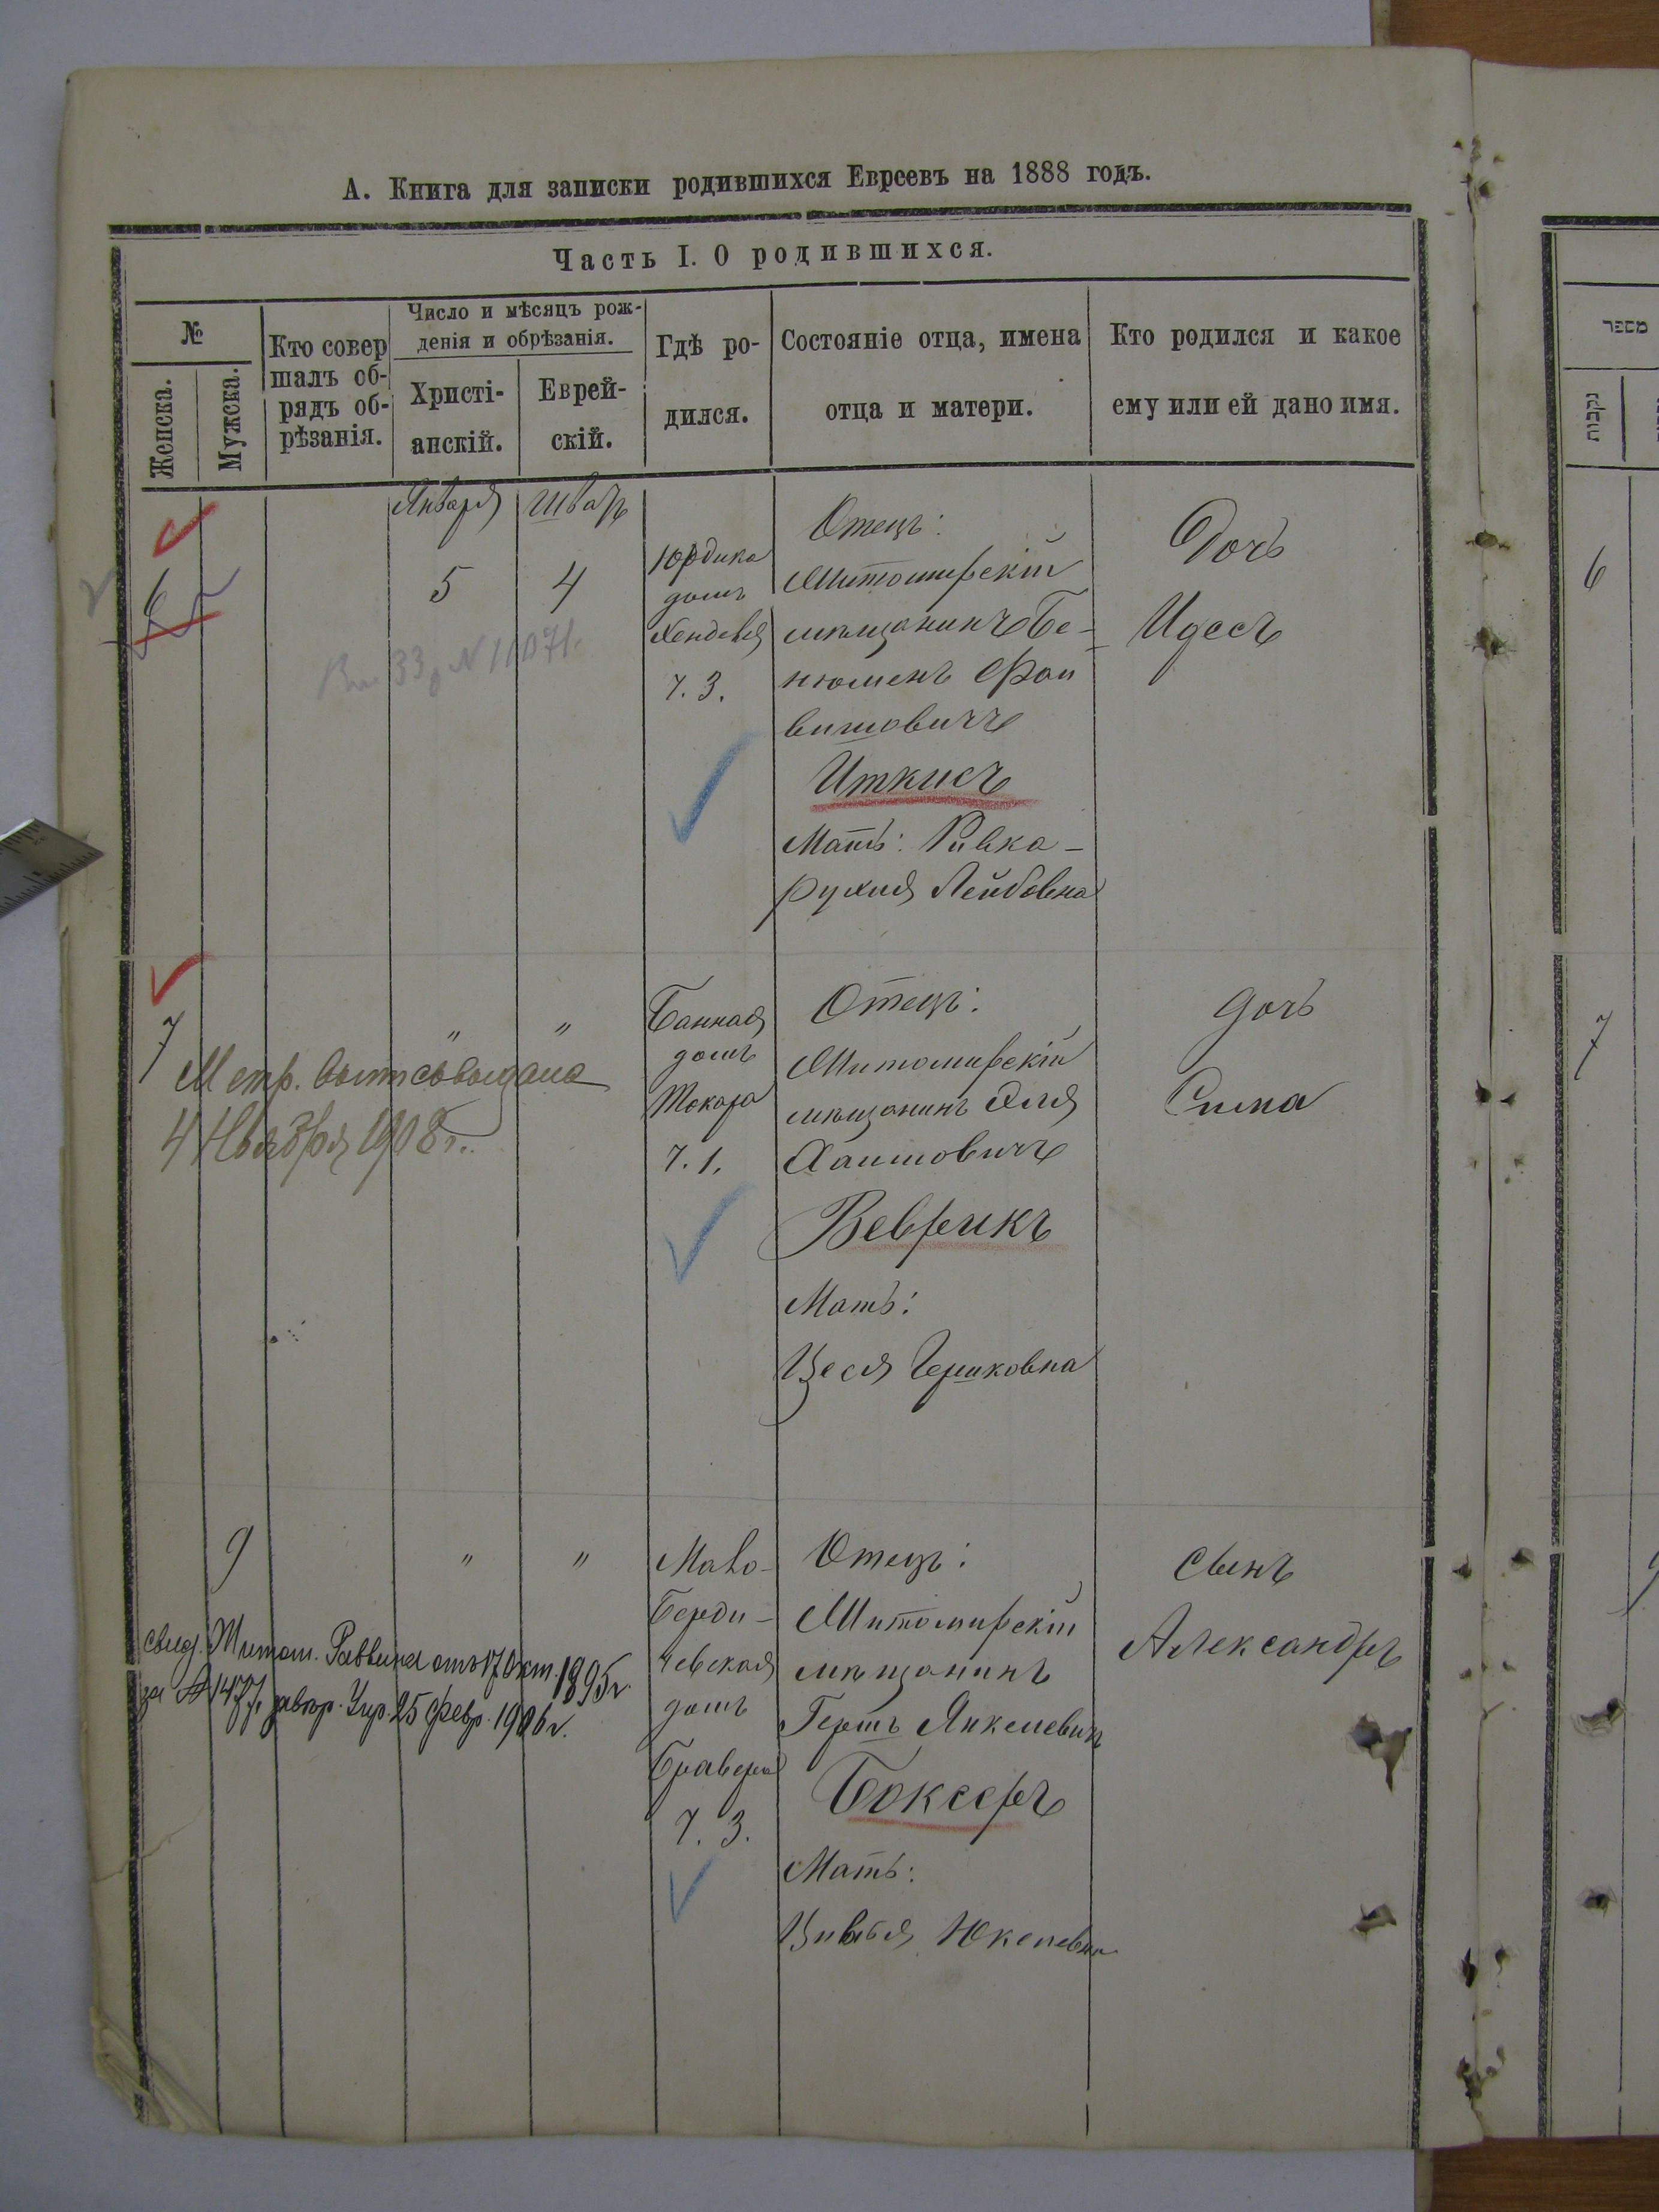 А. Книга для записки родившихся Евреевъ на 1888 годъ.
Часть I. О родившихся.
№
Женска.
Мужска.
Кто совер
шалъ об-
рядъ об-
рѣзанія.
Число и мѣсяцъ рож-
денія и обрѣзанія.
Христі-
анскій.
Еврей-
скій.
Гдѣ ро-
дился.
Состояніе отца, имена
отца и матери.
Кто родился и какое
ему или ей дано имя.
מספר
נקבות
Января
Шватъ
6
5
4
домъ
7. 3.
Отецъ:
Житомирскій
мѣщанинъ Бе-
нюменъ Фай
вишовичъ
Иткисъ
Мать: Ривка-
Рухля Лейбовна
Дочь
Идесъ
6
7
"
"
Метр. вып. выдана
4 Ноября 1908 г.
Банная
домъ
Токара
7. 1.
Отецъ:
Житомирскій
мѣщанинъ Эля
Хаимовичъ
Веврикъ
Мать:
Цеся Гершковна
дочь
Сима
7
9
"
"
свид. Житом. Раввина отъ 17 Окт. 1895 г.
за № 1477, 25 февр. 1906 г.
Мало-
Берди-
чевская
домъ
Бравера
7. 3.
Отецъ:
Житомирскій
мѣщанинъ
Гершъ Янкелевич
Боксеръ
Мать:
Цивья Юкелевна
сынъ
Александръ
9